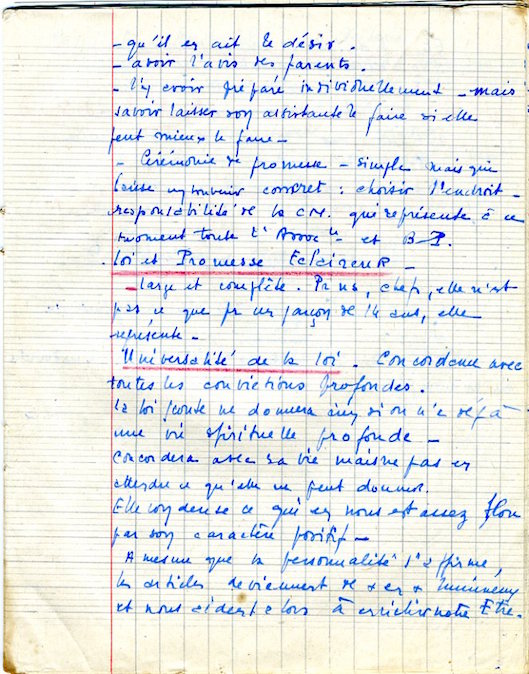 - qu'il en ait le désir.
- avoir l'avis des parents.
- l'y avoir préparé individuellement - mais
savoir laisser son assistante le faire si elle
peut mieux le faire -
- Cérémonie de promesse - simple mais qui
laisse un souvenir concret : choisir l'endroit -
responsabilité de la CM. qui représente à ce
moment toute l'Assoc^on et B-P.
Loi et Promesse Eclaireur -
- large et complète. Pr ns, chefs, elle n'est
pas ce que pr un garçon de 14 ans, elle
représente -
Universalité de la loi. Concordance avec
toutes les convictions profondes.
La loi scoute ne donnera rien si on n'a déjà
une vie spirituelle profonde -
Concordera avec sa vie mais ne pas en
attendre ce qu'elle ne peut donner.
Elle condense ce qui en nous est assez flou
par son caractère positif -
A mesure que la personnalité s'affirme,
les articles deviennent de + en + lumineux
et nous aident alors à enrichir notre Etre.